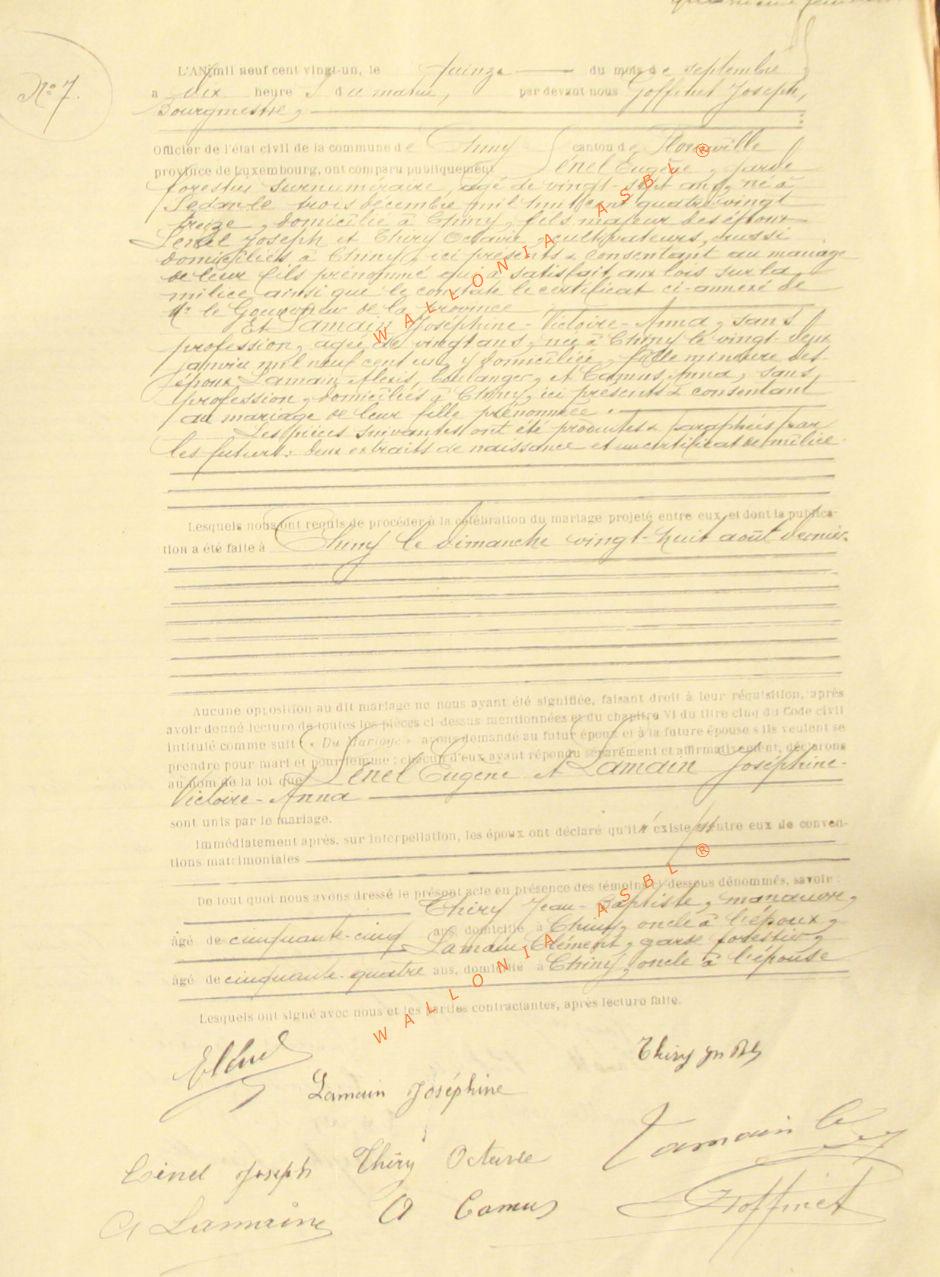 N° 7.
L'AN mil neuf cent vingt-un, le quinze du mois de septembre,
a dix heures du matin, par devant nous Goffinet Joseph,
Bourgmestre,
Officier de l'état civil de la commune de Chiny canton de Florenville
province de Luxembourg, ont comparu publiquement Lénel Eugène, garde
forestier surnuméraire, âgé de vingt-sept ans, né à
Sedan le trois décembre mil huit cent quatre vingt
treize, domicilié à Chiny, fils majeur des époux
Lénel Joseph et Thiry Octavie, cultivateurs, aussi
domiciliés à Chiny, ici présents & consentant au mariage
de leur fils prénommé qui a satisfait aux lois sur la
milice ainsi que le constate le certificat ci-annexé de
Mr le Gouverneur de la province
Et Lamain Joséphine-Victoire-Anna, sans
profession, agée de vingt ans, née à Chiny le vingt-deux
janvier mil neuf cent un, y domiciliée, fille mineure des
époux Lamain Alexis, boulanger, et Camus Anna, sans
profession, domiciliés à Chiny, ici présents & consentant
au mariage de leur fille prénommée.
Les pièces suivantes ont été produites & paraphées par
les futurs: deux extraits de naissance et un certificat de milice.
Lesquels nous ont requis de procéder à la célébration du mariage projeté entre eux, et dont la publica-
tion a été faite à Chiny le dimanche vingt-huit août dernier.
Aucune opposition au dit mariage ne nous ayant été signifiée, faisant droit à leur réquisition, après
avoir donné lecture de toutes les pièces ci-dessus mentionnées et du chapitre VI du titre cinq du Code civil
intitulé comme suit « Du Mariage » avons demandé au futur époux et à la future épouse s'ils veulent se
prendre pour mari et pour femme ; chacun d'eux ayant répondu séparément et affirmativement, déclarons
au nom de la loi que Lénel Eugène et Lamain Joséphine-
Victoire-Anna
sont unis par le mariage.
Immédiatement après, sur interpellation, les époux ont déclaré qu'il n'existe entre eux de conven-
tions matrimoniales
De tout quoi nous avons dressé le présent acte en présence des témoins ci-dessous dénommés, savoir :
Thiry Jean-Baptiste, manœuvre,
âgé de cinquante-cinq ans, domicilié à Chiny, oncle à l'époux,
Lamain Clément, garde forestier,
âgé de cinquante-quatre ans, domicilié à Chiny, oncle à l'épouse
Lesquels ont signé avec nous et les parties contractantes, après lecture faite.
Thiry
Lamain Joséphine
Lamain
Lénel Joseph Thiry Octavie
A Lamain A Camus Goffinet
WALLONIA ASBL ®
WALLONIA ASBL ®